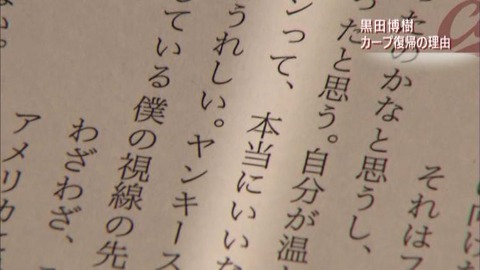 黒田博樹
カープ復帰の理由
に向け
それはフ
たのかなと思うし、
ったと思う。自分が温
ンって、本当にいいな
うれしい。ヤンキース
している僕の視線の先
わざわざ、
アメリカ
ない。